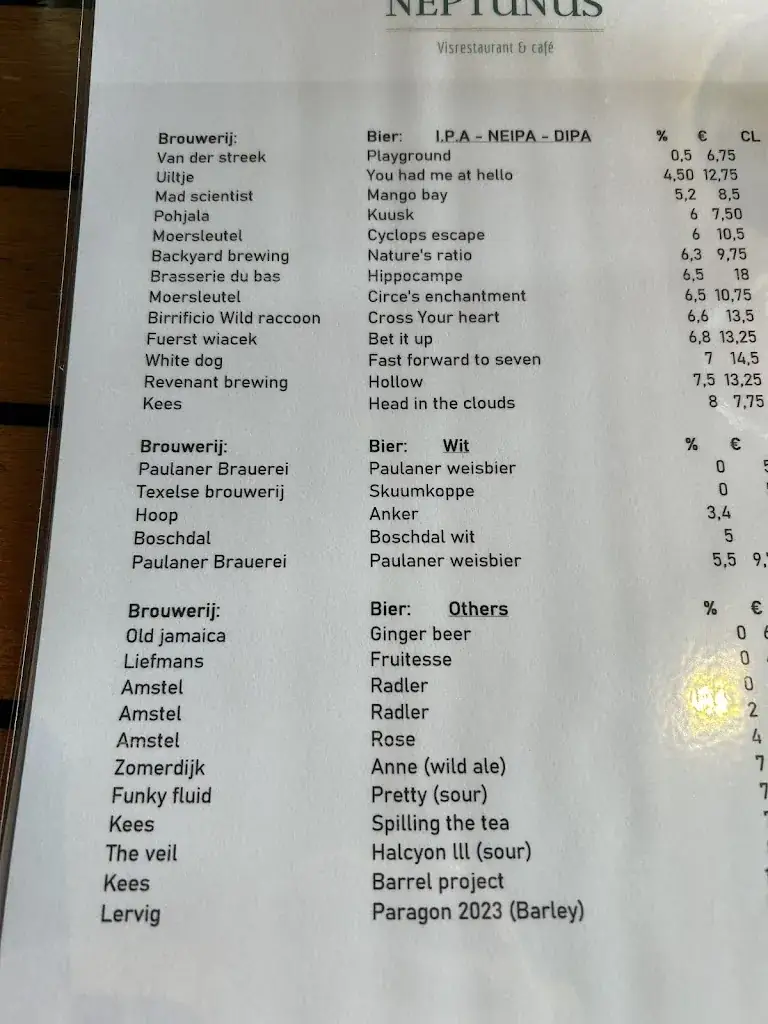 NEPTUNUS
Visrestaurant & café
Brouwerij: Bier: I.P.A - NEIPA - DIPA % € CL
Van der streek Playground 0,5 6,75
Uiltje You had me at hello 4,50 12,75
Mad scientist Mango bay 5,2 8,5
Pohjala Kuusk 6 7,50
Moersleutel Cyclops escape 6 10,5
Backyard brewing Nature's ratio 6,3 9,75
Brasserie du bas Hippocampe 6,5 18
Moersleutel Circe's enchantment 6,5 10,75
Birrificio Wild raccoon Cross Your heart 6,6 13,5
Fuerst wiacek Bet it up 6,8 13,25
White dog Fast forward to seven 7 14,5
Revenant brewing Hollow 7,5 13,25
Kees Head in the clouds 8 7,75
Brouwerij: Bier: Wit % €
Paulaner Brauerei Paulaner weisbier 0
Texelse brouwerij Skuumkoppe 0
Hoop Anker 3,4
Boschdal Boschdal wit 5
Paulaner Brauerei Paulaner weisbier 5,5 9,
Brouwerij: Bier: Others % €
Old jamaica Ginger beer 0
Liefmans Fruitesse 0
Amstel Radler 0
Amstel Radler 2
Amstel Rose 4
Zomerdijk Anne (wild ale) 7
Funky fluid Pretty (sour)
Kees Spilling the tea
The veil Halcyon lll (sour)
Kees Barrel project
Lervig Paragon 2023 (Barley)